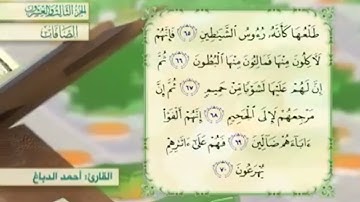 الجزء الثالث والعشرون
الصافات
طَلْعُهَا كَأَنَّهُۥ رُءُوسُ ٱلشَّيَٰطِينِ ﴿٦٥﴾ فَإِنَّهُمْ
لَءَاكِلُونَ مِنْهَا فَمَالِـُٔونَ مِنْهَا ٱلْبُطُونَ ﴿٦٦﴾ ثُمَّ
إِنَّ لَهُمْ عَلَيْهَا لَشَوْبًا مِّنْ حَمِيمٍ ﴿٦٧﴾ ثُمَّ إِنَّ
مَرْجِعَهُمْ لَإِلَى ٱلْجَحِيمِ ﴿٦٨﴾ إِنَّهُمْ أَلْفَوْا۟
ءَابَآءَهُمْ ضَآلِّينَ ﴿٦٩﴾ فَهُمْ عَلَىٰٓ ءَاثَٰرِهِمْ
يُهْرَعُونَ ﴿٧٠﴾
القارئ: أحمد الدباغ